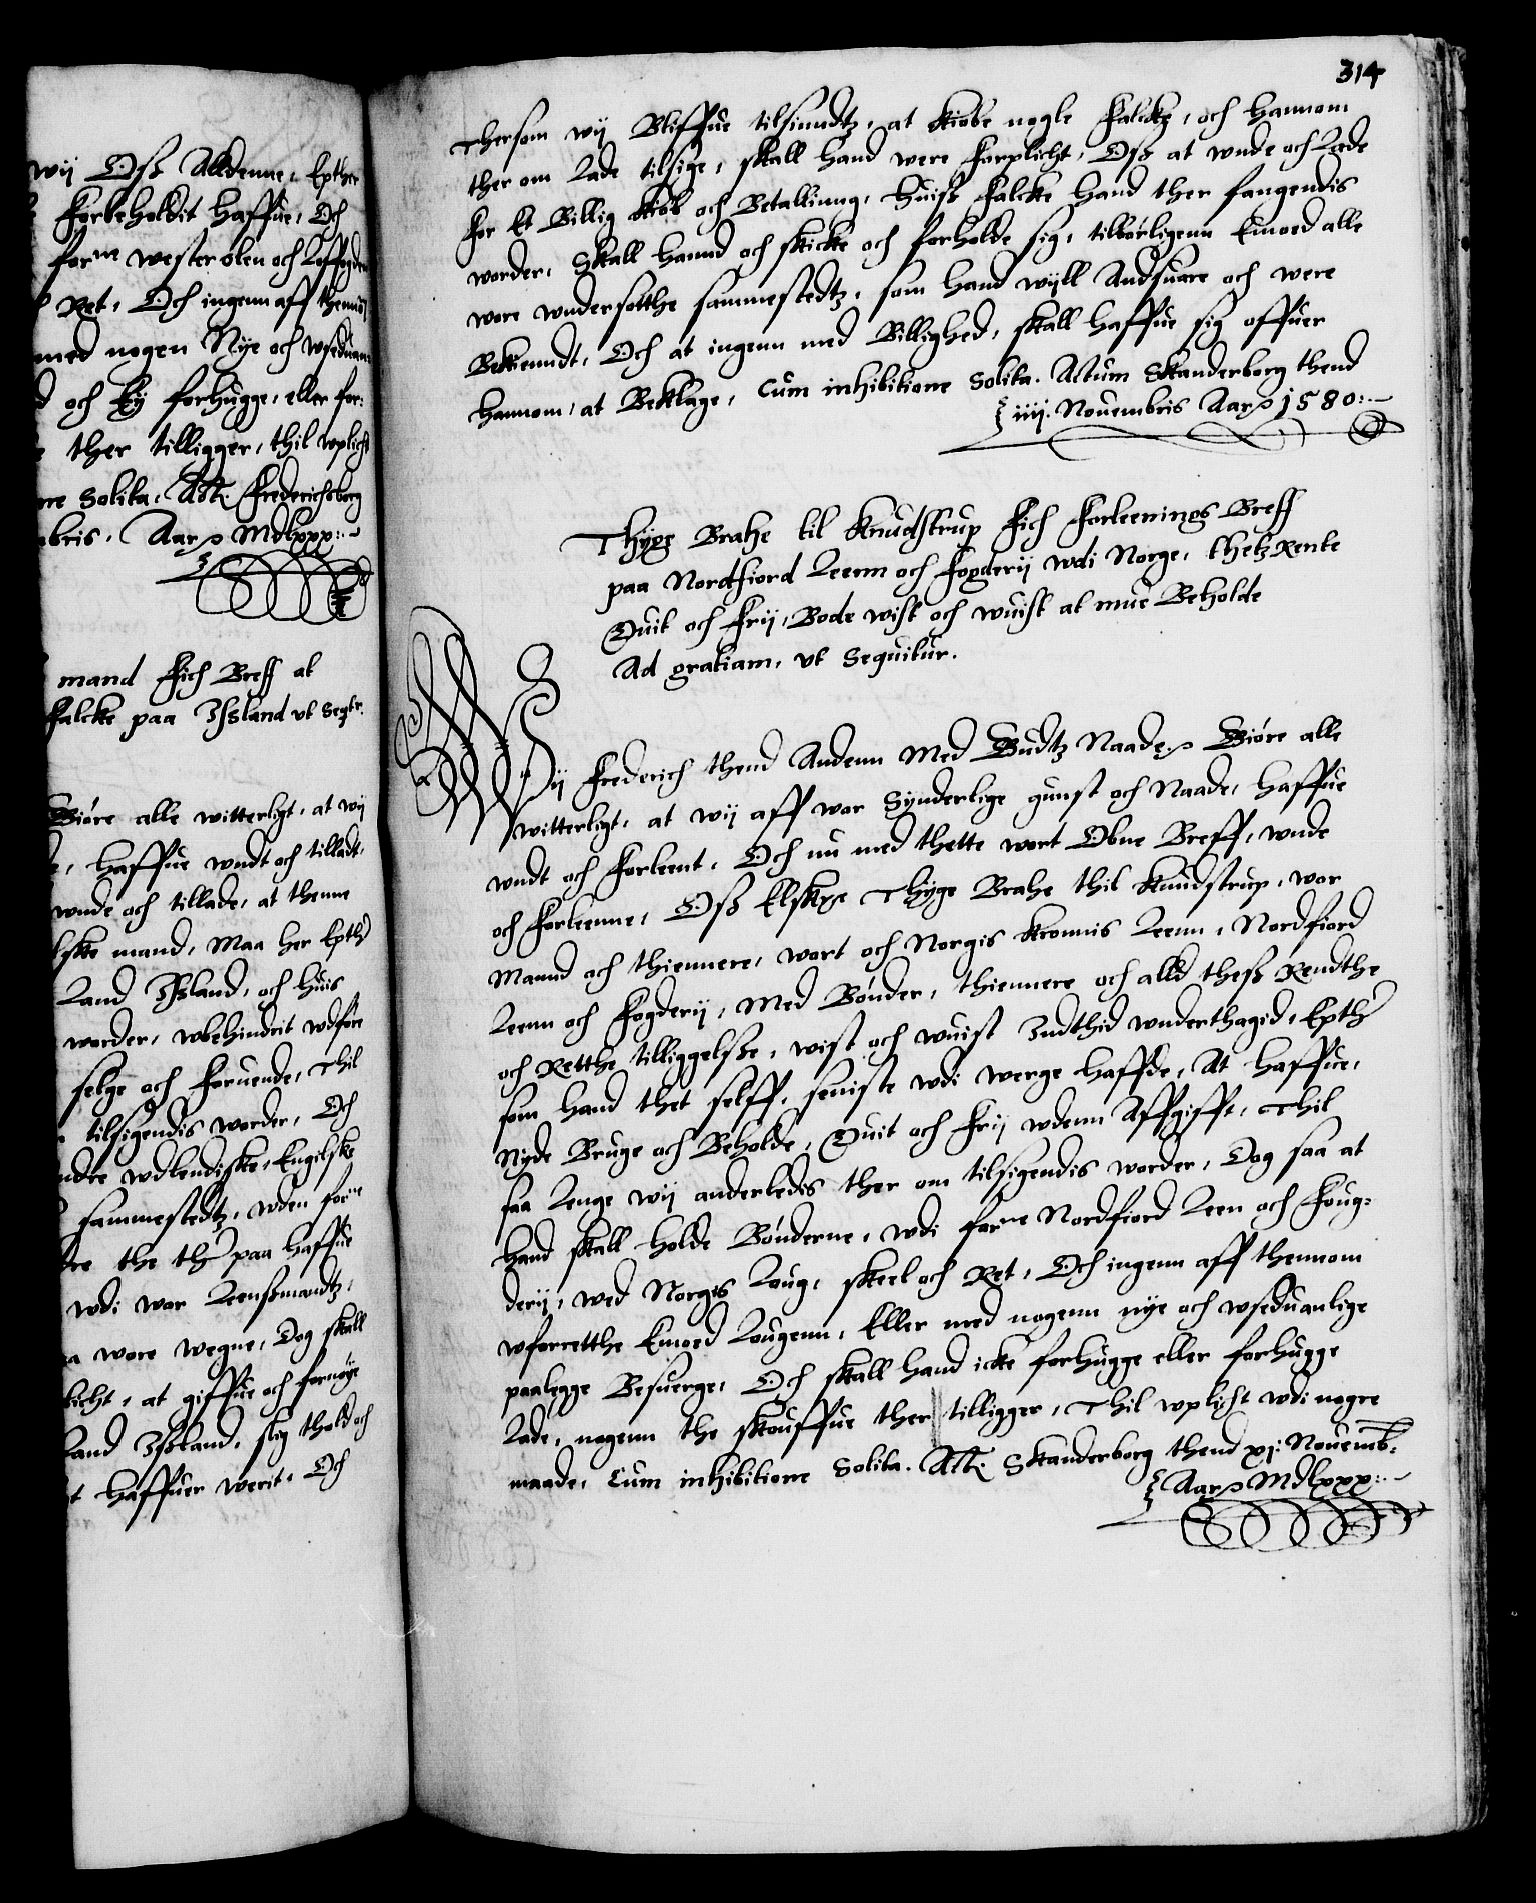 wij Oß Alldenne, Epther
Forbeholdit Haffue, Och
forne westerolen och Loffoden
Ret, Och ingenn aff thennom
med nogen Nye och wseduan-
och Ey forhugge, eller for:
ther tilligger, thil wplicht
Solita, Actt. Frederichsborg
bris. Aar p MDlxxx:-
mand Fich Breff at
Falcke paa Ißland vt Seqtr.
Giøre alle witterligt, at wij
Haffue wndt och tilladt,
wnde och tillade, at thenne
Elske mand, Maa her Epthr
Land Ißland, och huis
worder, wbehindrit wdføre
selge och Foruende, Thil
tilsigendis worder, Och
andre wdlendiske, Engilske
sammestedtz, wden forne
the thr paa haffue
wdi wor Leenßmandtz,
wore wegne, Dog skall
plicht, at giffue och fornøye
Land Ißland, slig thold och
haffuer werit, Och
314
Thersom wij Bliffue tilsinndtz, at kiøbe nogle Falcke, och Hannom
ther om Lade tilsige, skall hand were Forplicht, Oß at wnde och Lade
For Et Billig kiøb och Betallinng, Huiß Falcke Hand ther fangendis
worder, Skall Hannd och skicke och forholde sig, tilbørligenn Emoed alle
wore wndersotthe sammestedtz, som Hand wijll Andsuare och were
Bekiendt, Och at ingenn med Billighed, skall haffue sig offuer
Hannom, at Beklage, Cum inhibitione Solita. Actum Skanderborg thend
iiij. Nouembris Aar p 1580:-
Thyge Brahe til Knudstrup Fich Forleenings Breff
paa Nordfiord Leenn och Fogderij wdi Norge, thetz Rente
Quit och Frij, Bode wist och wuist at mue Beholde
Ad gratiam, vt Sequitur.
Wij Frederich thend Andenn Med Gudtz Naade p Giøre alle
witterligt, at wij aff wor Synderlige gunst och Naade, Haffue
wndt och Forleent, Och nu med thette wort Obne Breff, wnde
och Forleenne, Oß Elskx Thyge Brahe thil Knudstrup, wor
Mannd och thiennere, wort och Norgis Kronnis Leenn, Nordfiord
Leenn och Fogderij, Med Bønder, thiennere och alld theß Rendthe
och Retthe tilliggelße, wist och wuist Indthid wnderthagid, Epthr
som Hand thet selff, seniste wdi werge Haffde, At Haffue,
Nyde Bruge och Beholde, Quit och Frij wdenn Affgifft, Thil
saa Lenge wij anderledis ther om tilsigendis worder, Dog saa at
Hand skall holde Bønderne, wdi forne Nordfiord Leen och Foug-
derij, wed Norgis Loug, skeel och Ret, Och ingenn aff thennom
wforretthe Emoed Lougenn, Eller med nogenn nye och wseduanlige
paalegge Besuerge, Och skall hand icke forhugge eller forhugge
Lade, nogenn the skouffue ther tilligger, Thil wplicht wdi nogre
maade, Cum inhibitione Solita. Actt: Skanderborg thend xj. Nouemb:
Aar p MDlxxx:-